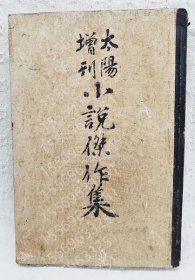 太陽
增刊
小說傑作集